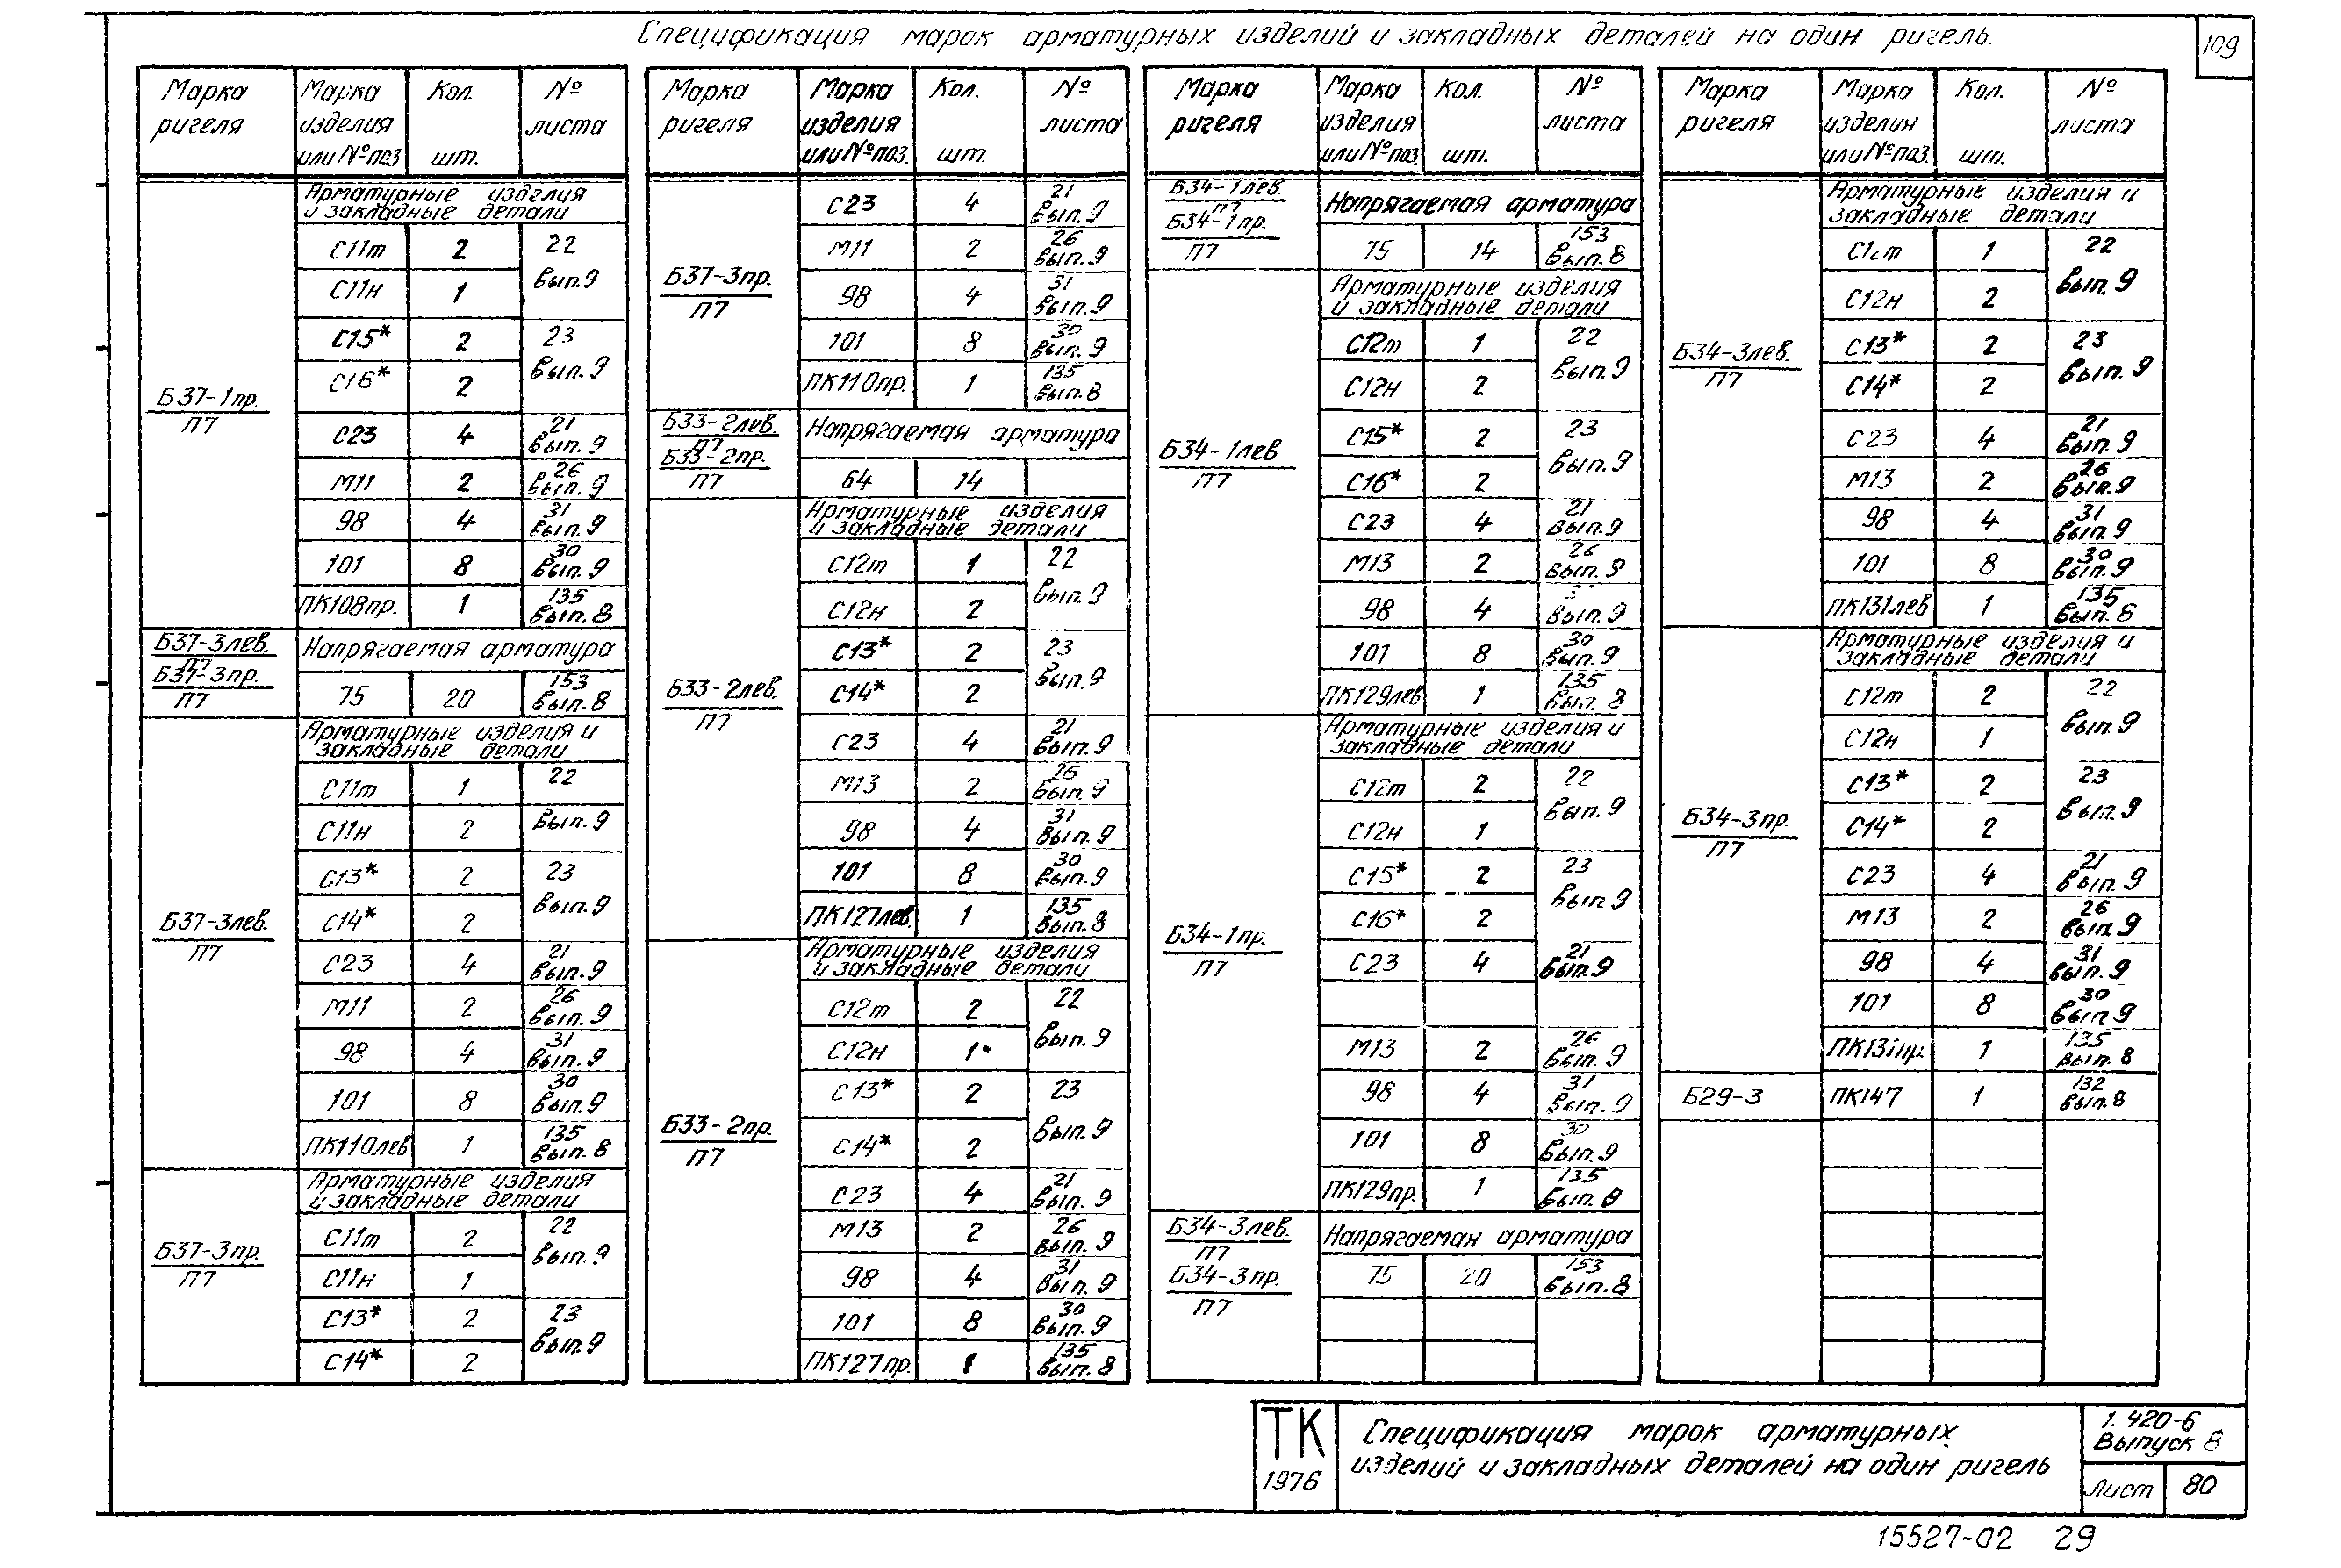 Спецификация марок арматурных изделий и закладных деталей на один ригель.
109
Марка ригеля | Марка изделия или № поз. | Кол. шт. | № листа
Б37-1пр./П7
Арматурные изделия и закладные детали
С11т 2 22 Вып.9
С11н 1
С15* 2 23 Вып.9
С16* 2
С23 4 21 Вып.9
М11 2 26 Вып.9
98 4 31 Вып.9
101 8 30 Вып.9
ПК108пр. 1 135 Вып.8
Б37-3лев./П7 Б37-3пр./П7
Напрягаемая арматура
75 20 153 Вып.8
Б37-3лев./П7
Арматурные изделия и закладные детали
С11т 1 22 Вып.9
С11н 2
С13* 2 23 Вып.9
С14* 2
С23 4 21 Вып.9
М11 2 26 Вып.9
98 4 31 Вып.9
101 8 30 Вып.9
ПК110лев 1 135 Вып.8
Б37-3пр./П7
Арматурные изделия и закладные детали
С11т 2 22 Вып.9
С11н 1
С13* 2 23 Вып.9
С14* 2
Марка ригеля | Марка изделия или № поз. | Кол. шт. | № листа
Б37-3пр./П7
С23 4 21 Вып.9
М11 2 26 Вып.9
98 4 31 Вып.9
101 8 30 Вып.9
ПК110пр. 1 135 Вып.8
Б33-2лев./П7 Б33-2пр./П7
Напрягаемая арматура
64 14
Б33-2лев./П7
Арматурные изделия и закладные детали
С12т 1 22 Вып.9
С12н 2
С13* 2 23 Вып.9
С14* 2
С23 4 21 Вып.9
М13 2 26 Вып.9
98 4 31 Вып.9
101 8 30 Вып.9
ПК127лев. 1 135 Вып.8
Б33-2пр./П7
Арматурные изделия и закладные детали
С12т 2 22 Вып.9
С12н 1
С13* 2 23 Вып.9
С14* 2
С23 4 21 Вып.9
М13 2 26 Вып.9
98 4 31 Вып.9
101 8 30 Вып.9
ПК127пр. 1 135 Вып.8
Марка ригеля | Марка изделия или № поз. | Кол. шт. | № листа
Б34-1лев./П7 Б34-1пр./П7
Напрягаемая арматура
75 14 153 Вып.8
Б34-1лев/П7
Арматурные изделия и закладные детали
С12т 1 22 Вып.9
С12н 2
С15* 2 23 Вып.9
С16* 2
С23 4 21 Вып.9
М13 2 26 Вып.9
98 4 Вып.9
101 8 30 Вып.9
ПК129лев 1 135 Вып.8
Б34-1пр./П7
Арматурные изделия и закладные детали
С12т 2 22 Вып.9
С12н 1
С15* 2 23 Вып.9
С16* 2
С23 4 21 Вып.9
М13 2 26 Вып.9
98 4 31 Вып.9
101 8 30 Вып.9
ПК129пр. 1 135 Вып.8
Б34-3лев./П7 Б34-3пр./П7
Напрягаемая арматура
75 20 153 Вып.8
Марка ригеля | Марка изделия или № поз. | Кол. шт. | № листа
Б34-3лев./П7
Арматурные изделия и закладные детали
С12т 1 22 Вып.9
С12н 2
С13* 2 23 Вып.9
С14* 2
С23 4 21 Вып.9
М13 2 26 Вып.9
98 4 31 Вып.9
101 8 30 Вып.9
ПК131лев 1 135 Вып.8
Б34-3пр./П7
Арматурные изделия и закладные детали
С12т 2 22 Вып.9
С12н 1
С13* 2 23 Вып.9
С14* 2
С23 4 21 Вып.9
М13 2 26 Вып.9
98 4 31 Вып.9
101 8 30 Вып.9
ПК131пр. 1 135 Вып.8
Б29-3 ПК147 1 132 Вып.8
ТК
1976
Спецификация марок арматурных
изделий и закладных деталей на один ригель
1.420-6
Выпуск 8
Лист 80
15527-02 29